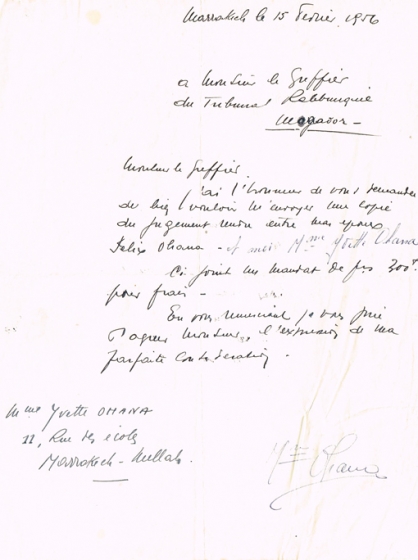 Marrakech le 15 Février 1956
a Monsieur le Greffier
du Tribunal Rabbinique
Mogador -
Monsieur le Greffier.
J'ai l'honneur de vous demander
de bien vouloir m'envoyer une copie
du jugement rendu entre mon époux
Félix Ohana - et moi Mme Yvette Ohana
Ci joint un mandat de frs 300.
pour frais -
En vous remerciant je vous prie
Monsieur, l'expression de ma
parfaite Considération.
Mme Yvette OHANA
11, Rue des écoles
Marrakech - Mellah.
Mme Ohana